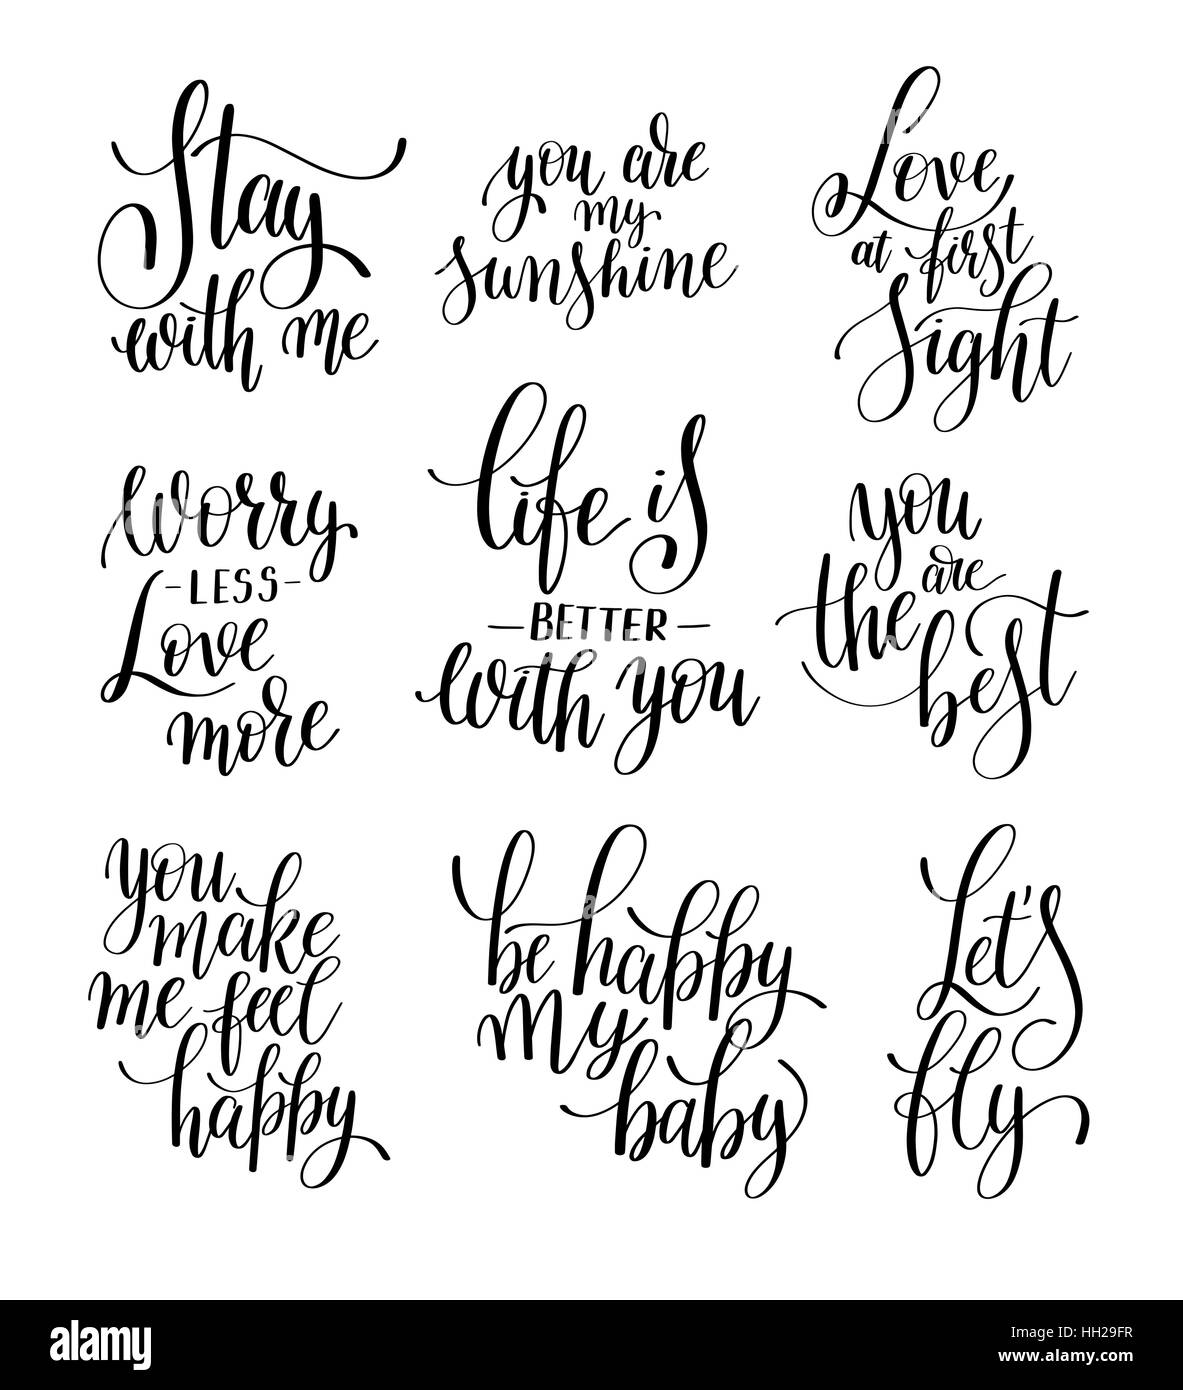 Stay
with me
you are
my
sunshine
Love
at first
Sight
Worry
-LESS-
Love
more
life is
—BETTER—
with you
you
are
the
best
you
make
me feel
happy
be happy
my
baby
Let's
fly
alamy stock photo
HH29FR
www.alamy.com